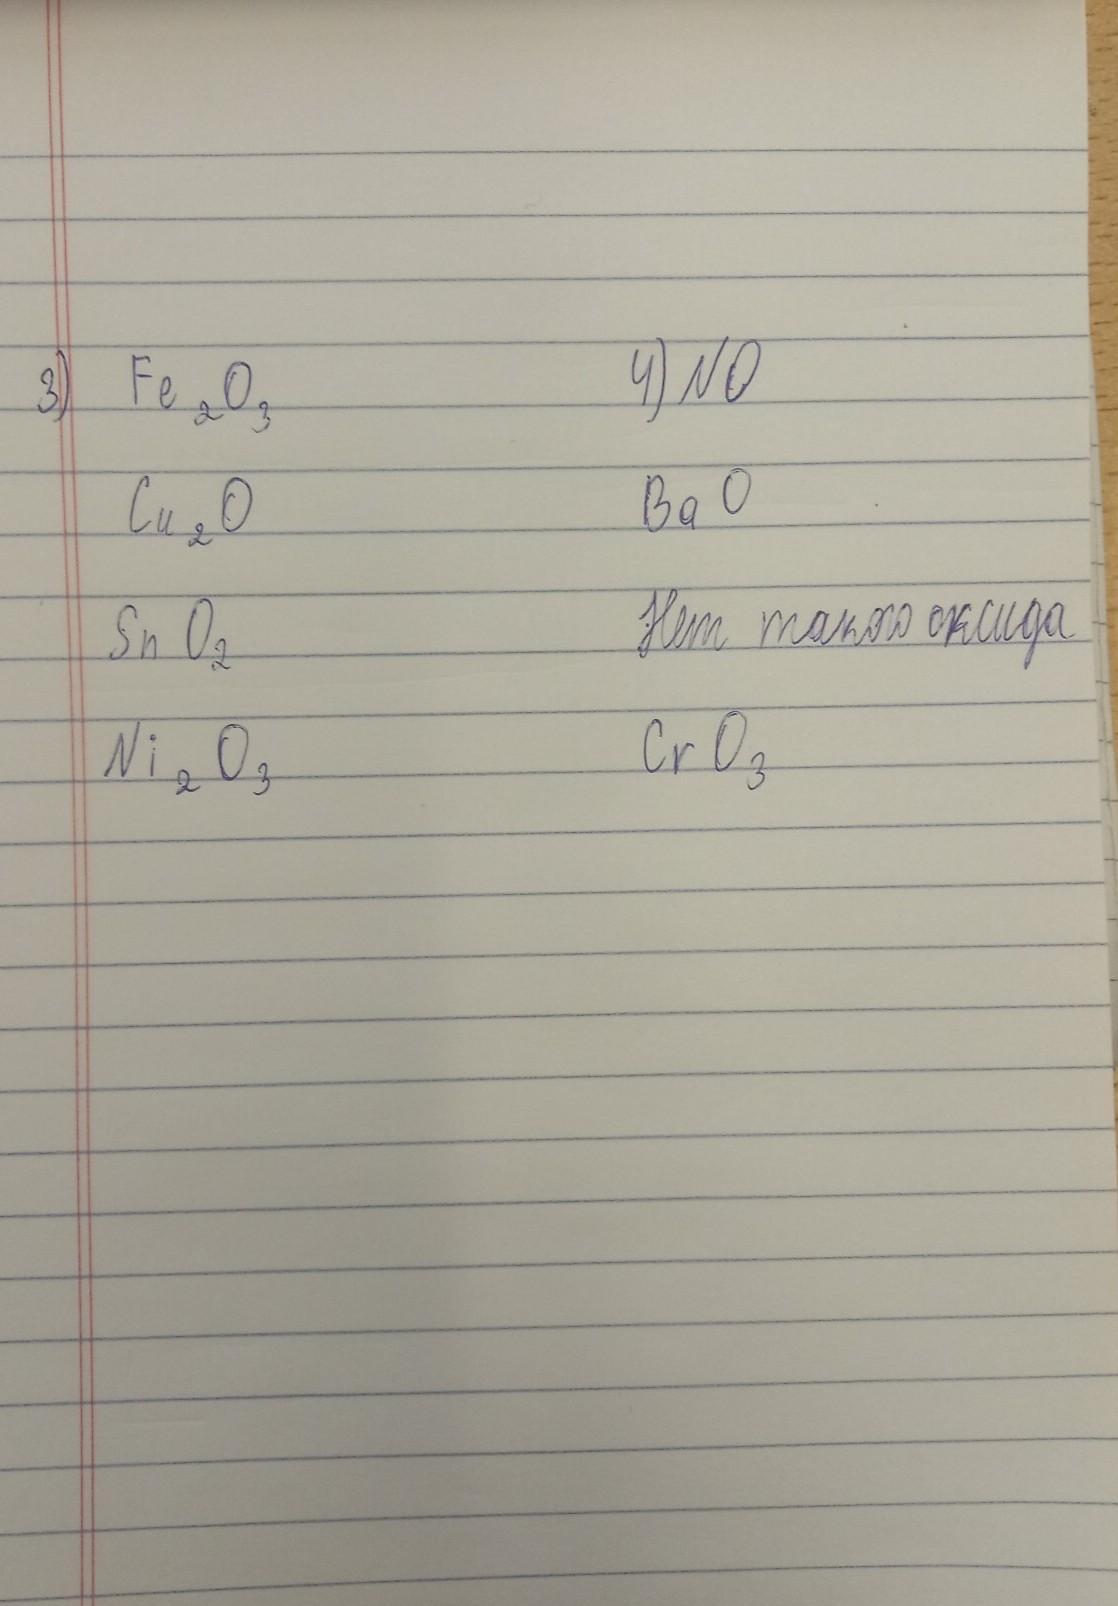 3) Fe₂O₃
Cu₂O
SnO₂
Ni₂O₃
4) NO
BaO
Нет такого оксида
CrO₃